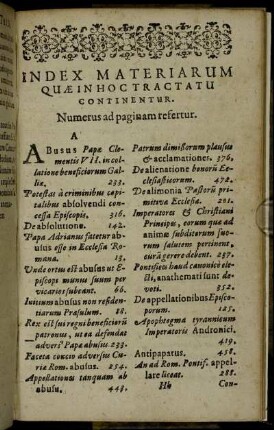 INDEX MATERIARUM
QUÆ IN HOC TRACTATU
CONTINENTUR.
Numerus ad paginam refertur.
A
ABusus Papæ Cle-
mentis VII. in col-
latione beneficiorum Gal-
liæ. 233.
Potestas à criminibus capi-
talibus absolvendi con-
cessa Episcopis. 316.
De absolutione. 142.
Papa Adrianus fatetur ab-
usus esse in Ecclesia Ro-
mana. 13.
Unde ortus est abusus ut E-
piscopi munus suum per
vicarios subeant. 66.
Initium abusus non residen-
tiarum Præsulum. 18.
Rex est sui regni beneficiorū
patronus, ut ea defendat
adversꝰ Papæ abusus 233.
Faceta concio adversus Cu-
riæ Rom. abusus. 254.
Appellationes tanquam ab
abusu. 443.
Patrum dimissorum plausus
& acclamationes. 376.
De alienatione bonorū Ec-
clesiasticorum. 472.
De alimonia Pastorū pri-
mitivæ Ecclesiæ. 201.
Imperatores & Christiani
Principes, eorum quæ ad
animæ subditorum suo-
rum salutem pertinent,
curā gerere debent. 233.
Pontifices haud canonicè ele-
cti, anathemati sunt de-
voti. 352.
De appellationibus Episco-
porum. 125.
Apophtegma tyrannicum
Imperatoris Andronici.
419.
Antipapatus. 458.
An ad Rom. Pontif. appel-
late liceat. 288.
Hh Con-